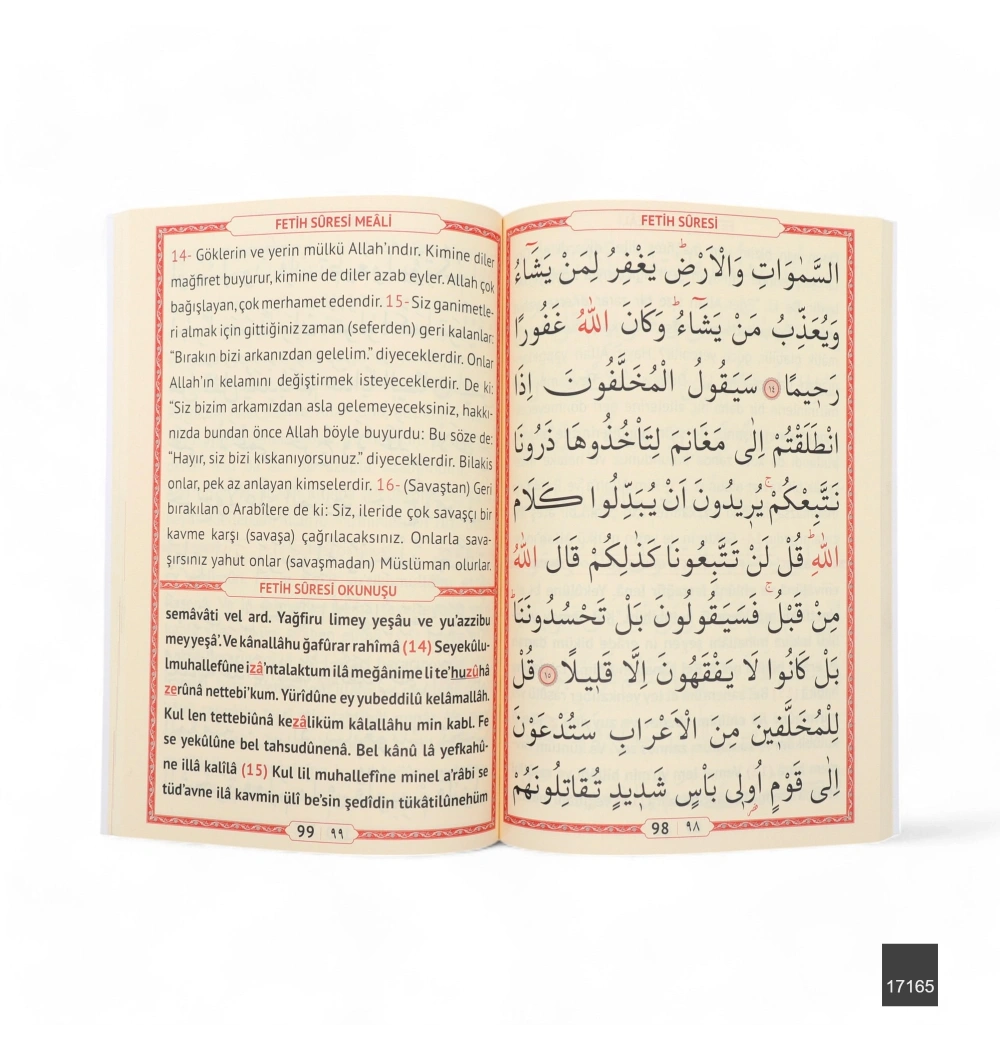 FETİH SÛRESİ
السَّمٰوَاتِ وَالْاَرْضِۜ يَغْفِرُ لِمَنْ يَشَٓاءُ
وَيُعَذِّبُ مَنْ يَشَٓاءُۜ وَكَانَ اللّٰهُ غَفُورًا
رَح۪يمًا ﴿١٤﴾ سَيَقُولُ الْمُخَلَّفُونَ اِذَا
انْطَلَقْتُمْ اِلٰى مَغَانِمَ لِتَأْخُذُوهَا ذَرُونَا
نَتَّبِعْكُمْۚ يُر۪يدُونَ اَنْ يُبَدِّلُوا كَلَامَ
اللّٰهِۜ قُلْ لَنْ تَتَّبِعُونَا كَذٰلِكُمْ قَالَ اللّٰهُ
مِنْ قَبْلُۚ فَسَيَقُولُونَ بَلْ تَحْسُدُونَنَاۜ
بَلْ كَانُوا لَا يَفْقَهُونَ اِلَّا قَل۪يلًا ﴿١٥﴾ قُلْ
لِلْمُخَلَّف۪ينَ مِنَ الْاَعْرَابِ سَتُدْعَوْنَ
اِلٰى قَوْمٍ اُو۬ل۪ى بَأْسٍ شَد۪يدٍ تُقَاتِلُونَهُمْ
98 | ٩٨
FETİH SÛRESİ MEÂLİ
14- Göklerin ve yerin mülkü Allah'ındır. Kimine diler
mağfiret buyurur, kimine de diler azab eyler. Allah çok
bağışlayan, çok merhamet edendir. 15- Siz ganimetle-
ri almak için gittiğiniz zaman (seferden) geri kalanlar:
“Bırakın bizi arkanızdan gelelim.” diyeceklerdir. Onlar
Allah'ın kelamını değiştirmek isteyeceklerdir. De ki:
“Siz bizim arkamızdan asla gelemeyeceksiniz, hakkı-
nızda bundan önce Allah böyle buyurdu: Bu söze de:
“Hayır, siz bizi kıskanıyorsunuz.” diyeceklerdir. Bilakis
onlar, pek az anlayan kimselerdir. 16- (Savaştan) Geri
bırakılan o Arabîlere de ki: Siz, ileride çok savaşçı bir
kavme karşı (savaşa) çağrılacaksınız. Onlarla sava-
şırsınız yahut onlar (savaşmadan) Müslüman olurlar.
FETİH SÛRESİ OKUNUŞU
semâvâti vel ard. Yağfiru limey yeşâu ve yu'azzibu
mey yeşâ'. Ve kânallâhu ğafûrar rahîmâ (14) Seyekûlu-
lmuhallefûne izâ'ntalaktum ilâ meğânime li te'huzûhâ
zerûnâ nettebi'kum. Yürîdûne ey yubeddilû kelâmallâh.
Kul len tettebiûnâ kezâliküm kâlallâhu min kabl. Fe
se yekûlûne bel tahsudûnenâ. Bel kânû lâ yefkahû-
ne illâ kalîlâ (15) Kul lil muhallefîne minel a'râbi se
tüd'avne ilâ kavmin ülî be'sin şedîdin tükâtilûnehüm
99 | ٩٩
17165